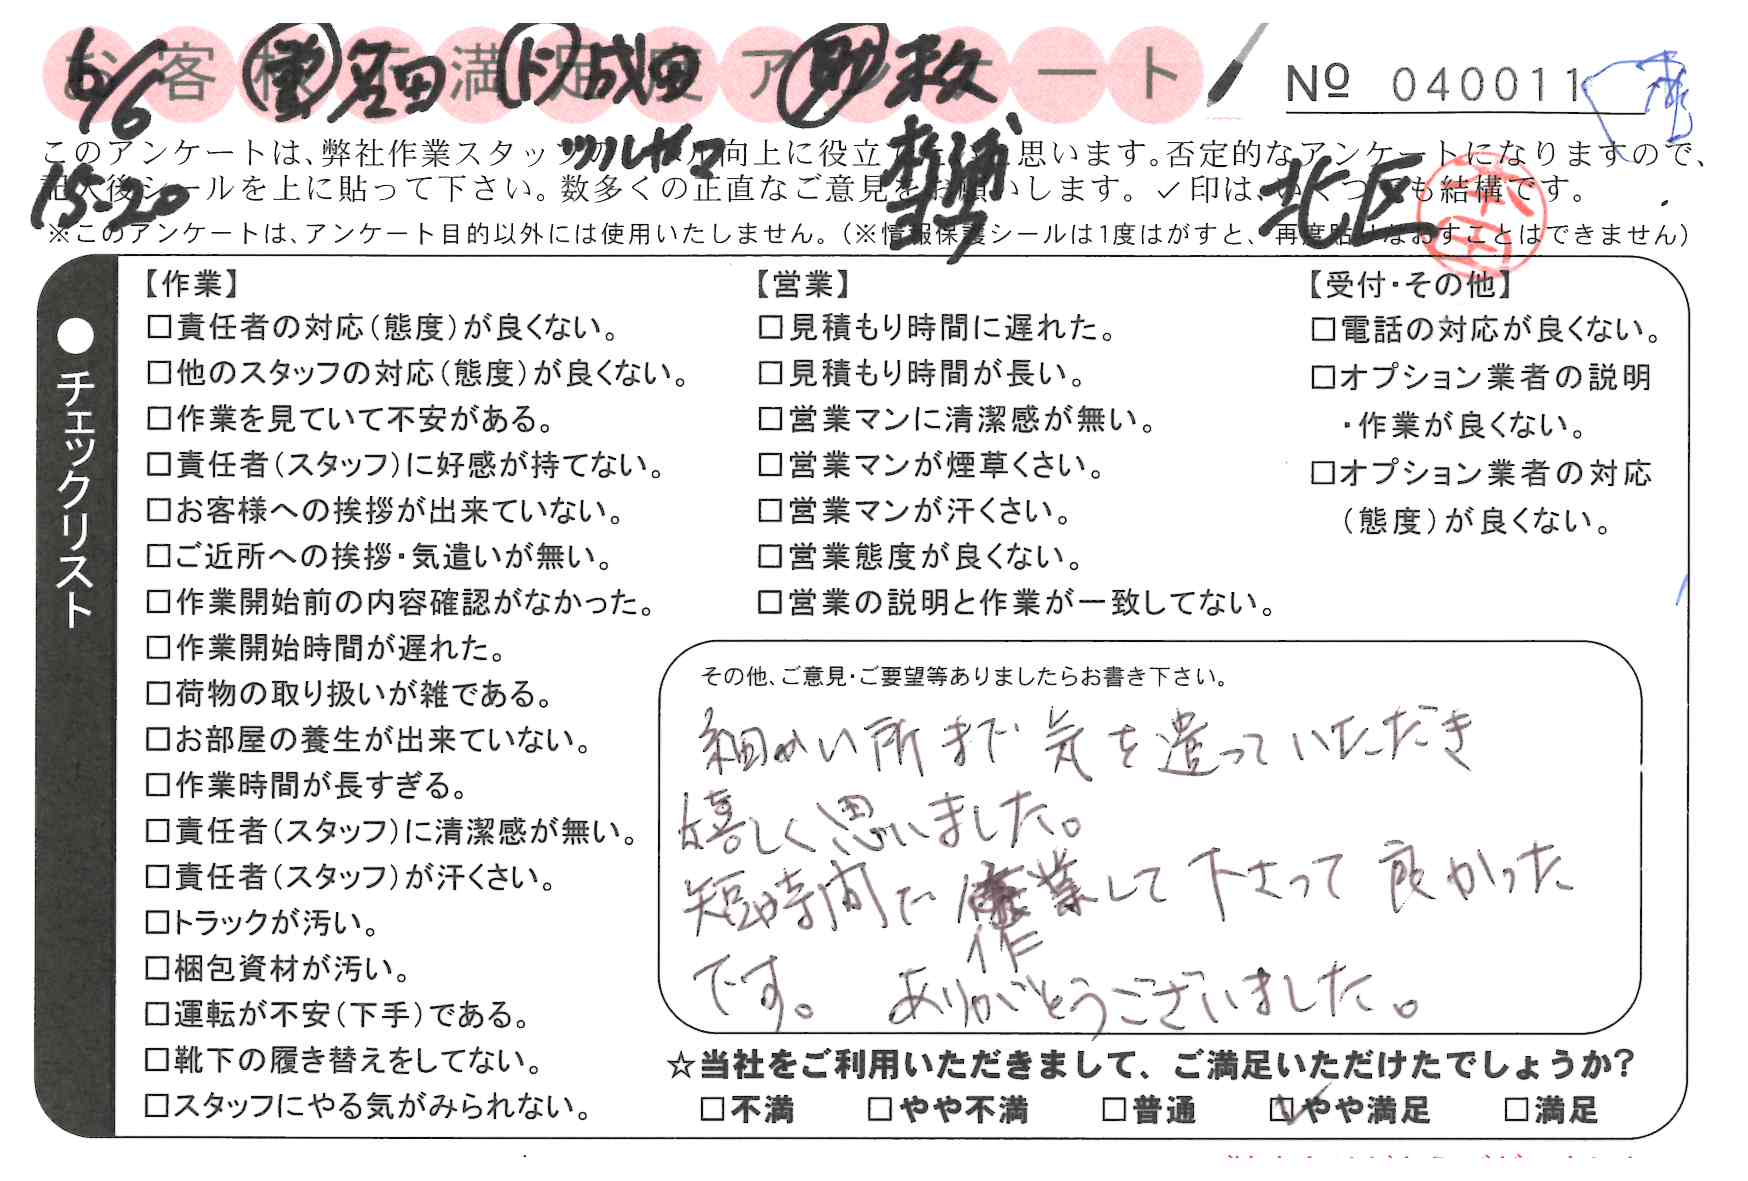 お客様不満足度アンケート
№ 040011
6/6
成田
15-20
北区
このアンケートは、弊社作業スタッフのレベル向上に役立 思います。否定的なアンケートになりますので、
記入後シールを上に貼って下さい。数多くの正直なご意見をお願いします。✓印は、いくつでも結構です。
※このアンケートは、アンケート目的以外には使用いたしません。(※情報保護シールは1度はがすと、再度貼りなおすことはできません)
●チェックリスト
【作業】
□責任者の対応(態度)が良くない。
□他のスタッフの対応(態度)が良くない。
□作業を見ていて不安がある。
□責任者(スタッフ)に好感が持てない。
□お客様への挨拶が出来ていない。
□ご近所への挨拶・気遣いが無い。
□作業開始前の内容確認がなかった。
□作業開始時間が遅れた。
□荷物の取り扱いが雑である。
□お部屋の養生が出来ていない。
□作業時間が長すぎる。
□責任者(スタッフ)に清潔感が無い。
□責任者(スタッフ)が汗くさい。
□トラックが汚い。
□梱包資材が汚い。
□運転が不安(下手)である。
□靴下の履き替えをしてない。
□スタッフにやる気がみられない。
【営業】
□見積もり時間に遅れた。
□見積もり時間が長い。
□営業マンに清潔感が無い。
□営業マンが煙草くさい。
□営業マンが汗くさい。
□営業態度が良くない。
□営業の説明と作業が一致してない。
【受付・その他】
□電話の対応が良くない。
□オプション業者の説明
・作業が良くない。
□オプション業者の対応
(態度)が良くない。
その他、ご意見・ご要望等ありましたらお書き下さい。
細かい所まで気を遣っていただき
嬉しく思いました。
短時間で作業して下さって良かった
です。 ありがとうございました。
☆当社をご利用いただきまして、ご満足いただけたでしょうか?
□不満 □やや不満 □普通 ☑やや満足 □満足